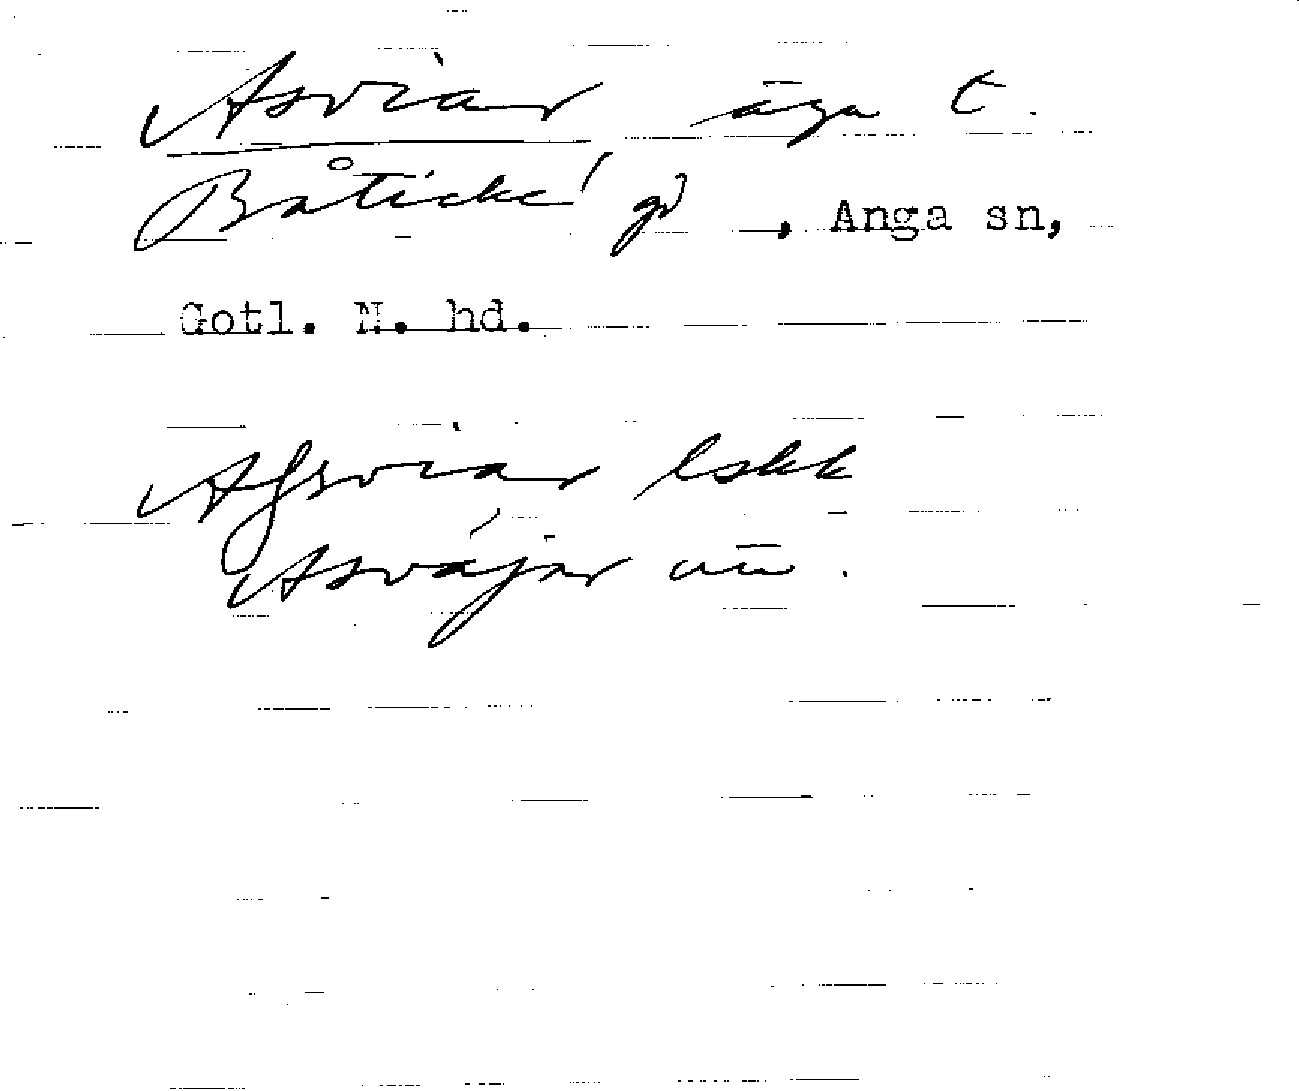 Asviar äga t.
Båticke gd, Anga sn,
Gotl. N. hd.
Afsviar lskk
Asvájar